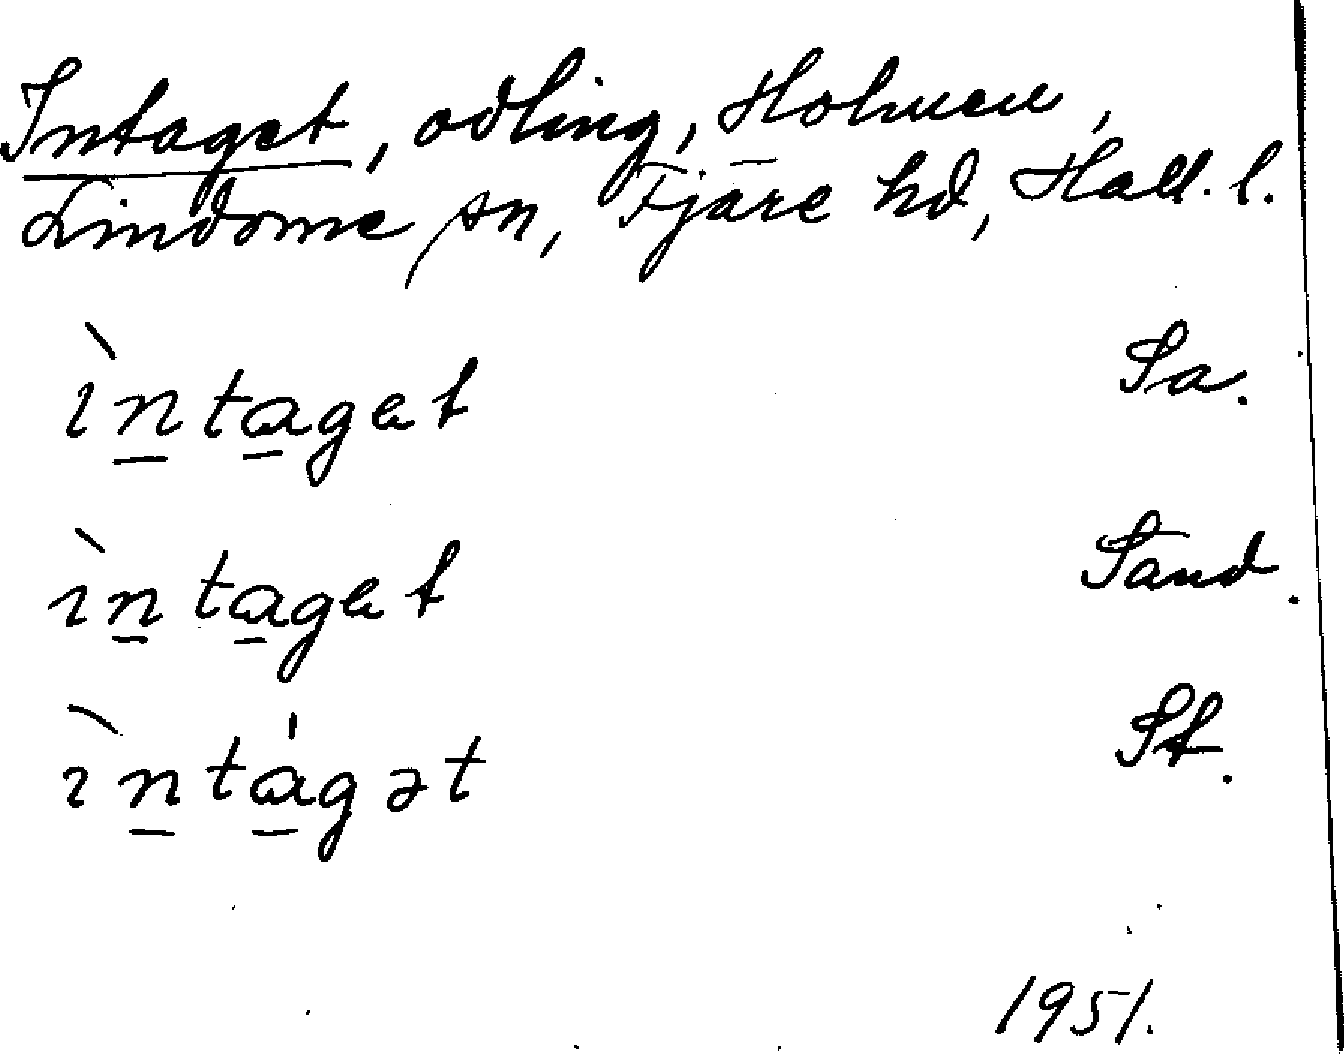 Intaget, odling, Holmen,
Lindome sn, Fjäre hd, Hall. l.
ìn̲ta̲gæt Sa.
ìn̲ta̲gæt Sand.
ìn̲tá̲gət St.
1951.